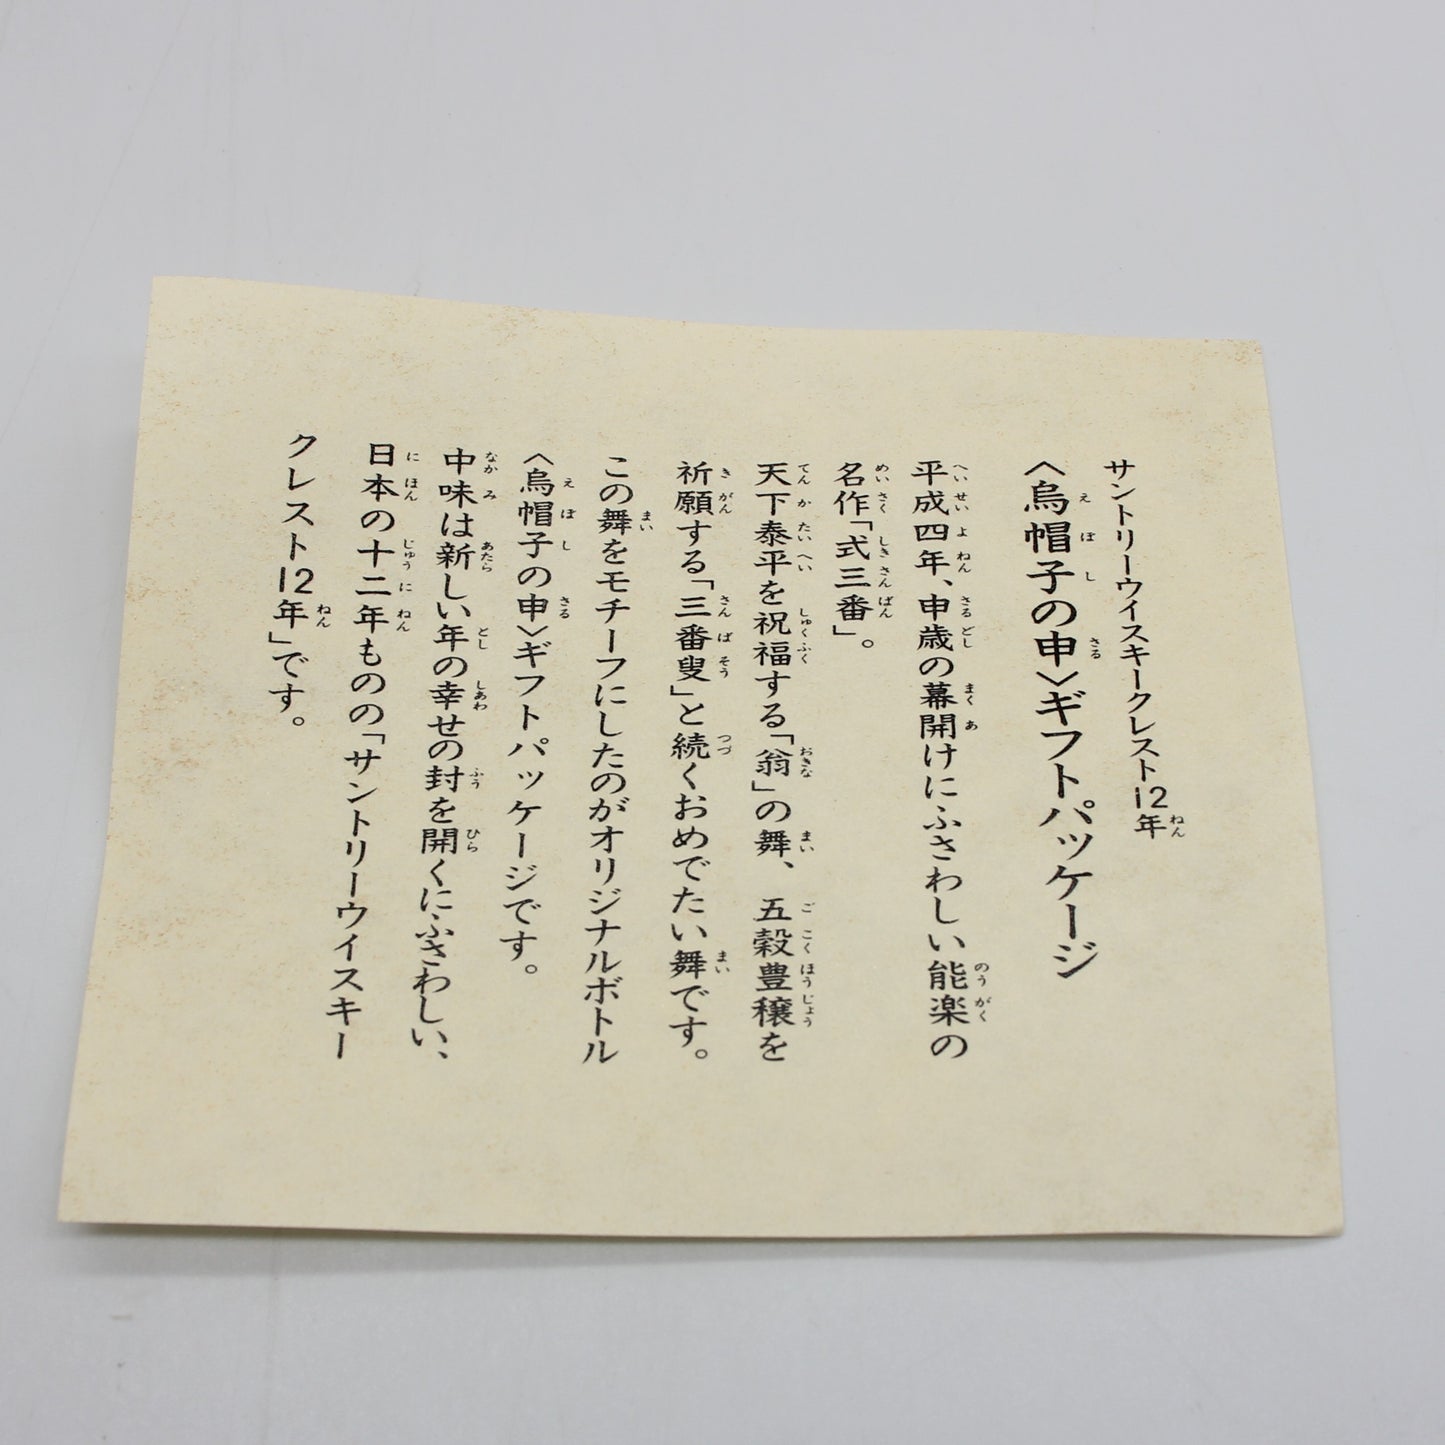 サントリーウイスキークレスト12年
〈烏帽子の申〉ギフトパッケージ
平成四年、申歳の幕開けにふさわしい能楽の
名作「式三番」。
天下泰平を祝福する「翁」の舞、五穀豊穣を
祈願する「三番叟」と続くおめでたい舞です。
この舞をモチーフにしたのがオリジナルボトル
〈烏帽子の申〉ギフトパッケージです。
中味は新しい年の幸せの封を開くにふさわしい、
日本の十二年ものの「サントリーウイスキー
クレスト12年」です。